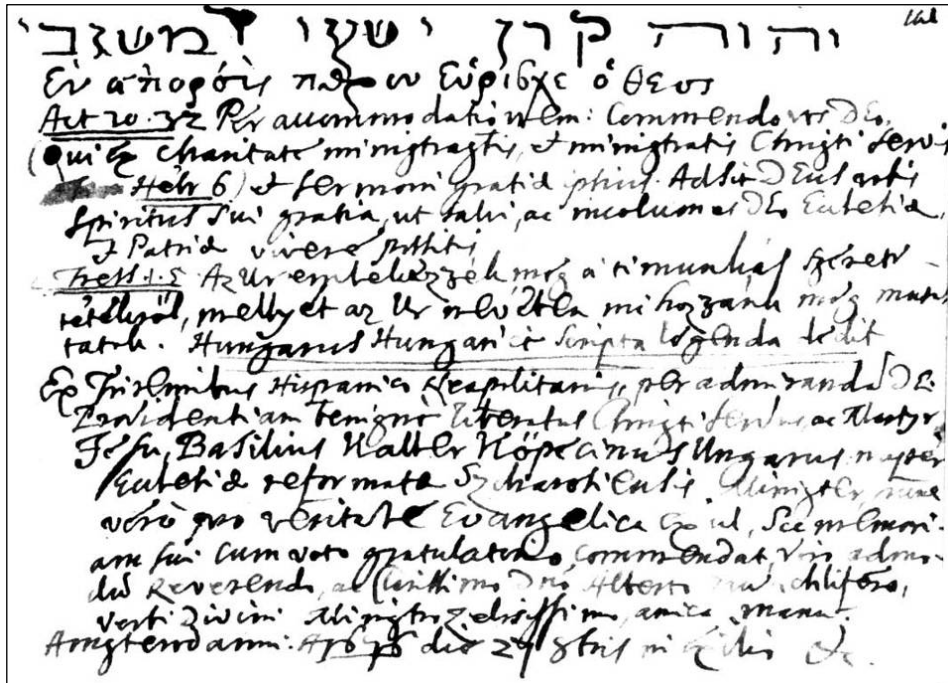 יהוה קרן ישעי משגבי
Ἐν ἀπόροις πόρον εὕρισκε ὁ θεος
Act 20. 32 Per accommodationem: Commendo vos DEo,
(Qui ex charitate ministrastis, et ministratis Christi servis
Hebr 6) et sermoni gratiae ipsius. Adsit DEus vobis
Spiritus Sui gratia, ut salvi, ac incolumes DEo Ecclesiae,
et Patriae vivere possitis
Az Ur emlekezzék meg a ti munkás szerete-
tetekröl, mellyet az Ur nevében mi hozzánk meg muta
tatok. Hungarus Hungaricè scripta legenda dedit
Ex Triremibus Hispanico Neapolitanis, per admirandā DEi
Providentiam benignè liberatus Christi servus, ac Martyr
Jesu, Basilius Kalser Köpecinus Ungarus nuper
Ecclesiae reformatae Minister, nunc
verò pro veritate Evangelica Exul, Sce memori-
am sui cum voto gratulatorio commendat, Viro admo-
dū Reverendo, ac Clarissimo Dnō Alberto
verbi Divini Ministro zelosissimo, amica manu.
Amsterdami: A 1676 die 29 8bris in Exilio &c.